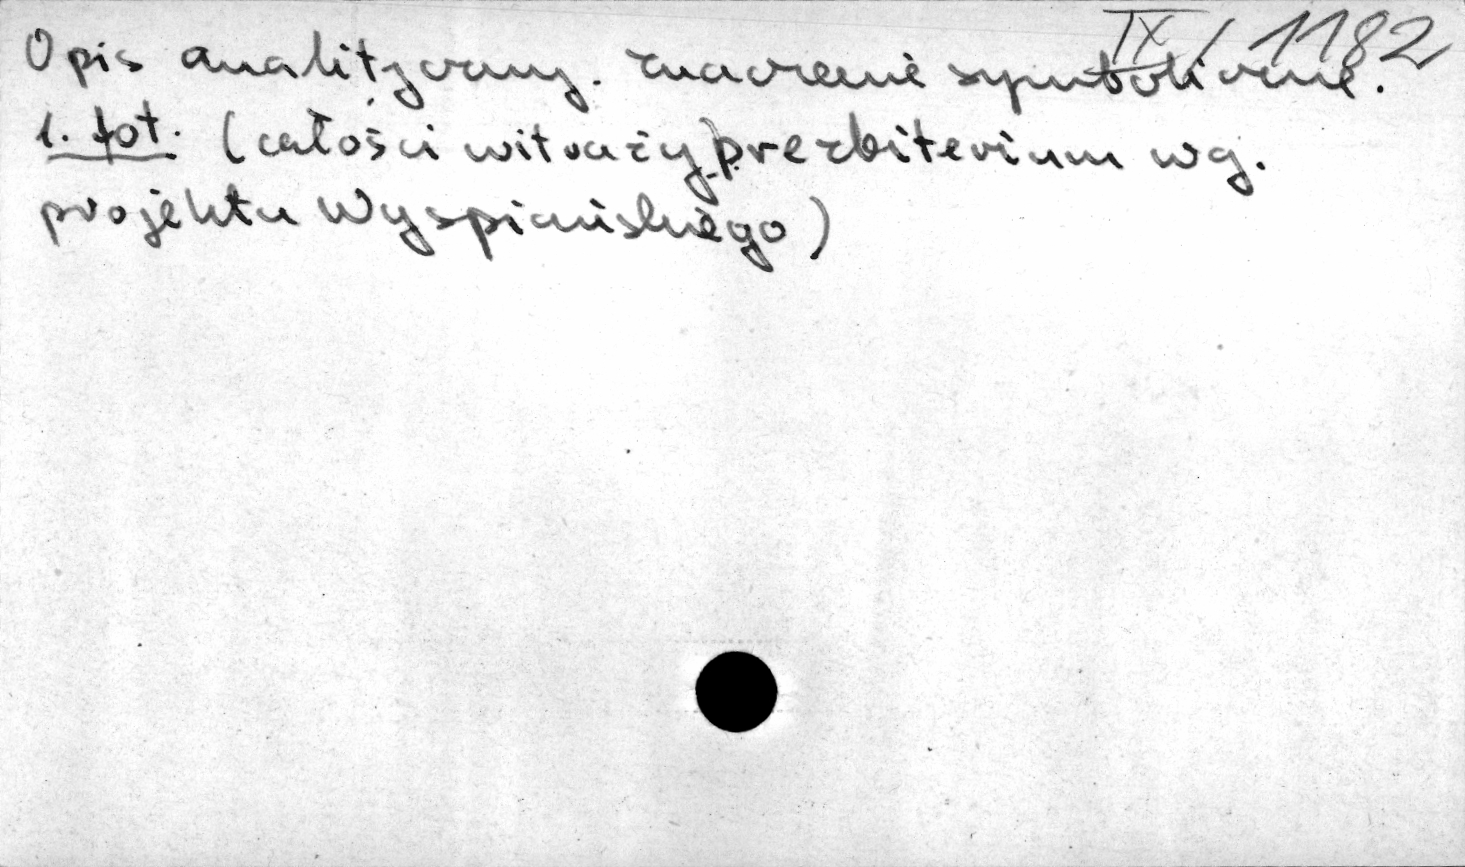 IX/1182
Opis analityczny. znaczenie symboliczne.
1. fot. (całości witraży prezbiterium wg.
projektu Wyspiańskiego)